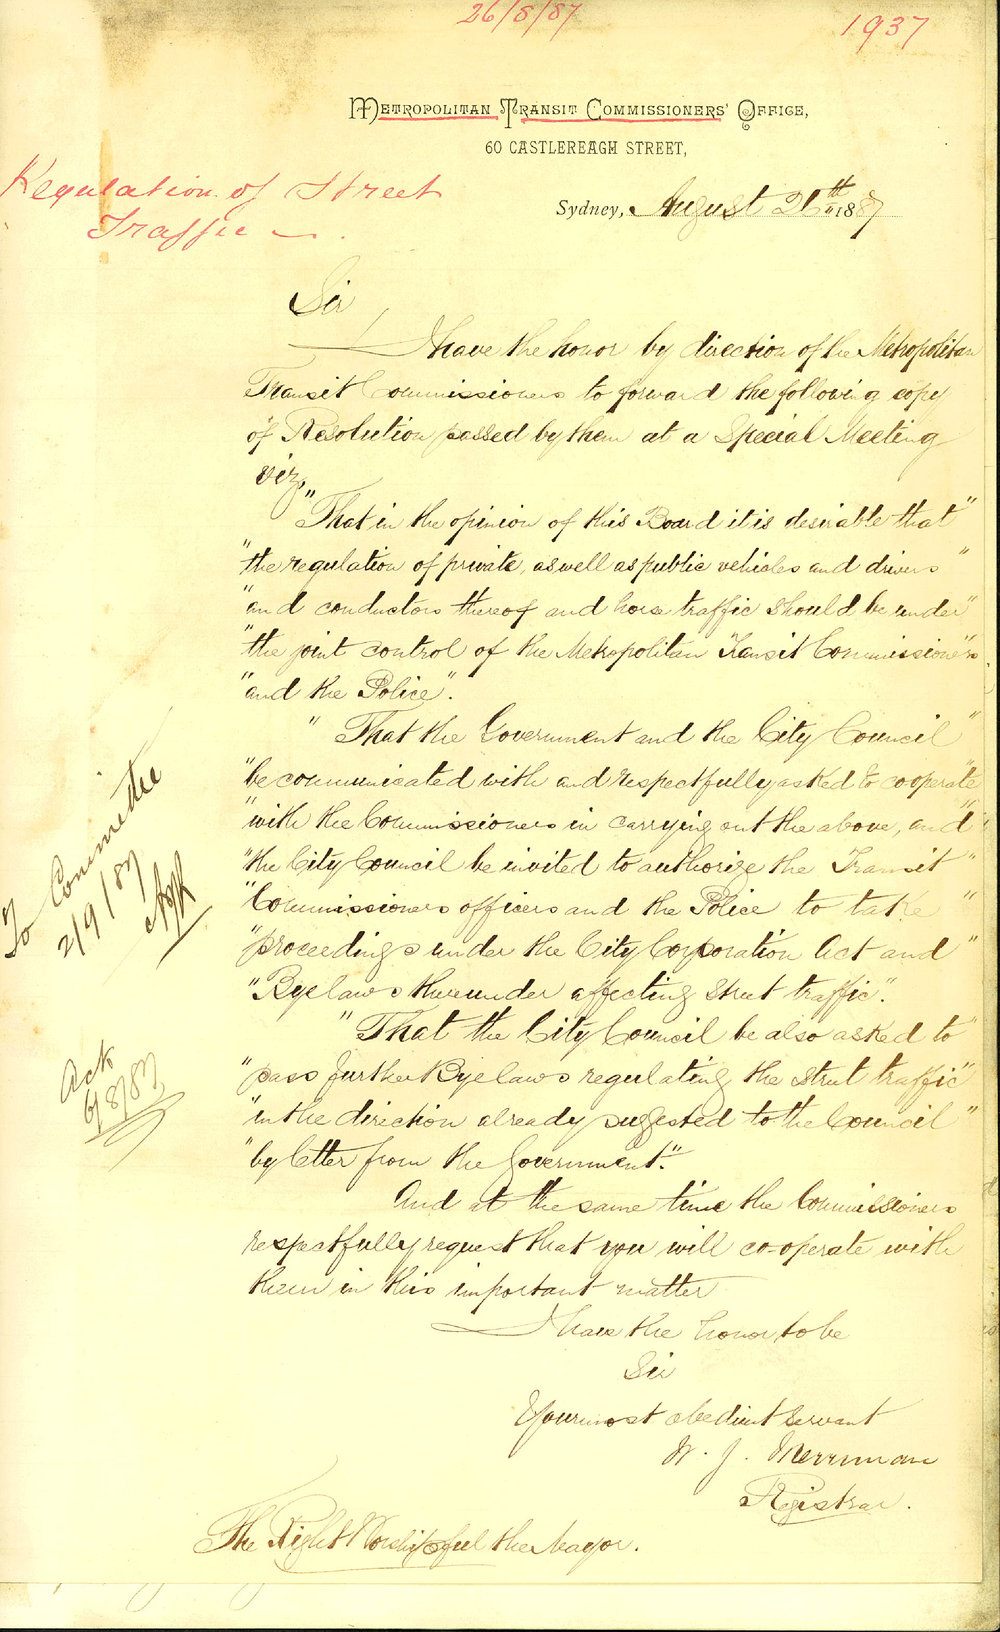 26/8/87
1937
METROPOLITAN TRANSIT COMMISSIONERS' OFFICE,
60 CASTLEREAGH STREET,
Regulation of Street
Traffic
Sydney, August 26th 1887
Sir
I have the honor by direction of the Metropolitan
Transit Commissioners to forward the following copy
of Resolution passed by them at a Special Meeting
viz,
"That in the opinion of this Board it is desirable that"
"the regulation of private, as well as public vehicles and drivers"
"and conductors thereof and horse traffic should be under"
"the joint control of the Metropolitan Transit Commissioners"
"and the Police".
"That the Government and the City Council"
"be communicated with and respectfully asked to cooperate"
"with the Commissioners in carrying out the above, and"
"the City Council be invited to authorize the Transit"
"Commissioners officers and the Police to take"
"proceedings under the City Corporation Act and"
"Byelaws thereunder affecting street traffic".
"That the City Council be also asked to"
"pass further Byelaws regulating the street traffic"
"in the direction already suggested to the Council"
"by letter from the Government."
And at the same time the Commissioners
respectfully request that you will co-operate with
them in this important matter
I have the honor to be
Sir
Your most obedient Servant
W. J. Merriman
Registrar.
The Right Worshipful the Mayor.
To Committee
2/9/87
Ack